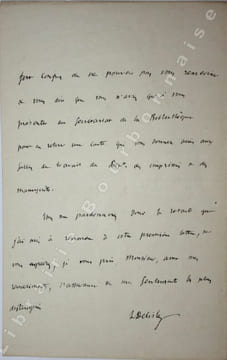 pas vous
à vous dire que vous n'avez qu'à vous
présenter au Secrétariat de la Bibliothèque
pour y retirer une carte qui vous donnera accès aux
salles de travail du Dépt. des imprimés et des
manuscrits.
Vous me pardonnerez donc le retard que
j'ai mis à répondre à votre première lettre, et
vous agréerez, je vous prie, Monsieur, avec mes
remerciements, l'assurance de mes sentiments les plus
distingués
L Delisle
Librairie Bourbonnaise